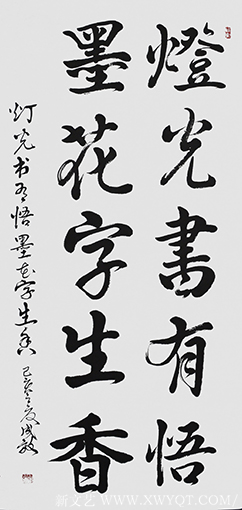 燈光書有悟
墨花字生香
灯光书有悟墨花字生香 己亥之夏成教
新文艺/WWW.XWYQT.COM/